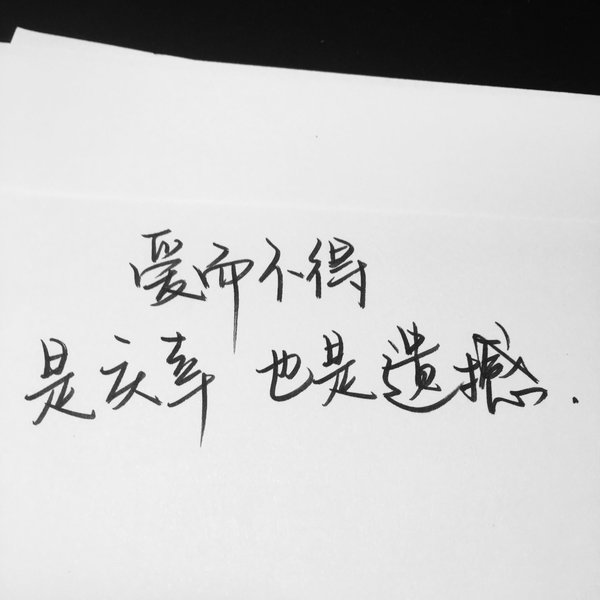 爱而不得
是庆幸 也是遗撼.